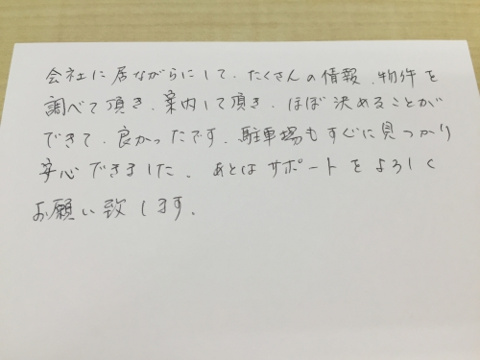 会社に居ながらにして、たくさんの情報、物件を
調べて頂き、案内して頂き、ほぼ決めることが
できて、良かったです。駐車場もすぐに見つかり
安心できました。あとはサポートをよろしく
お願い致します。